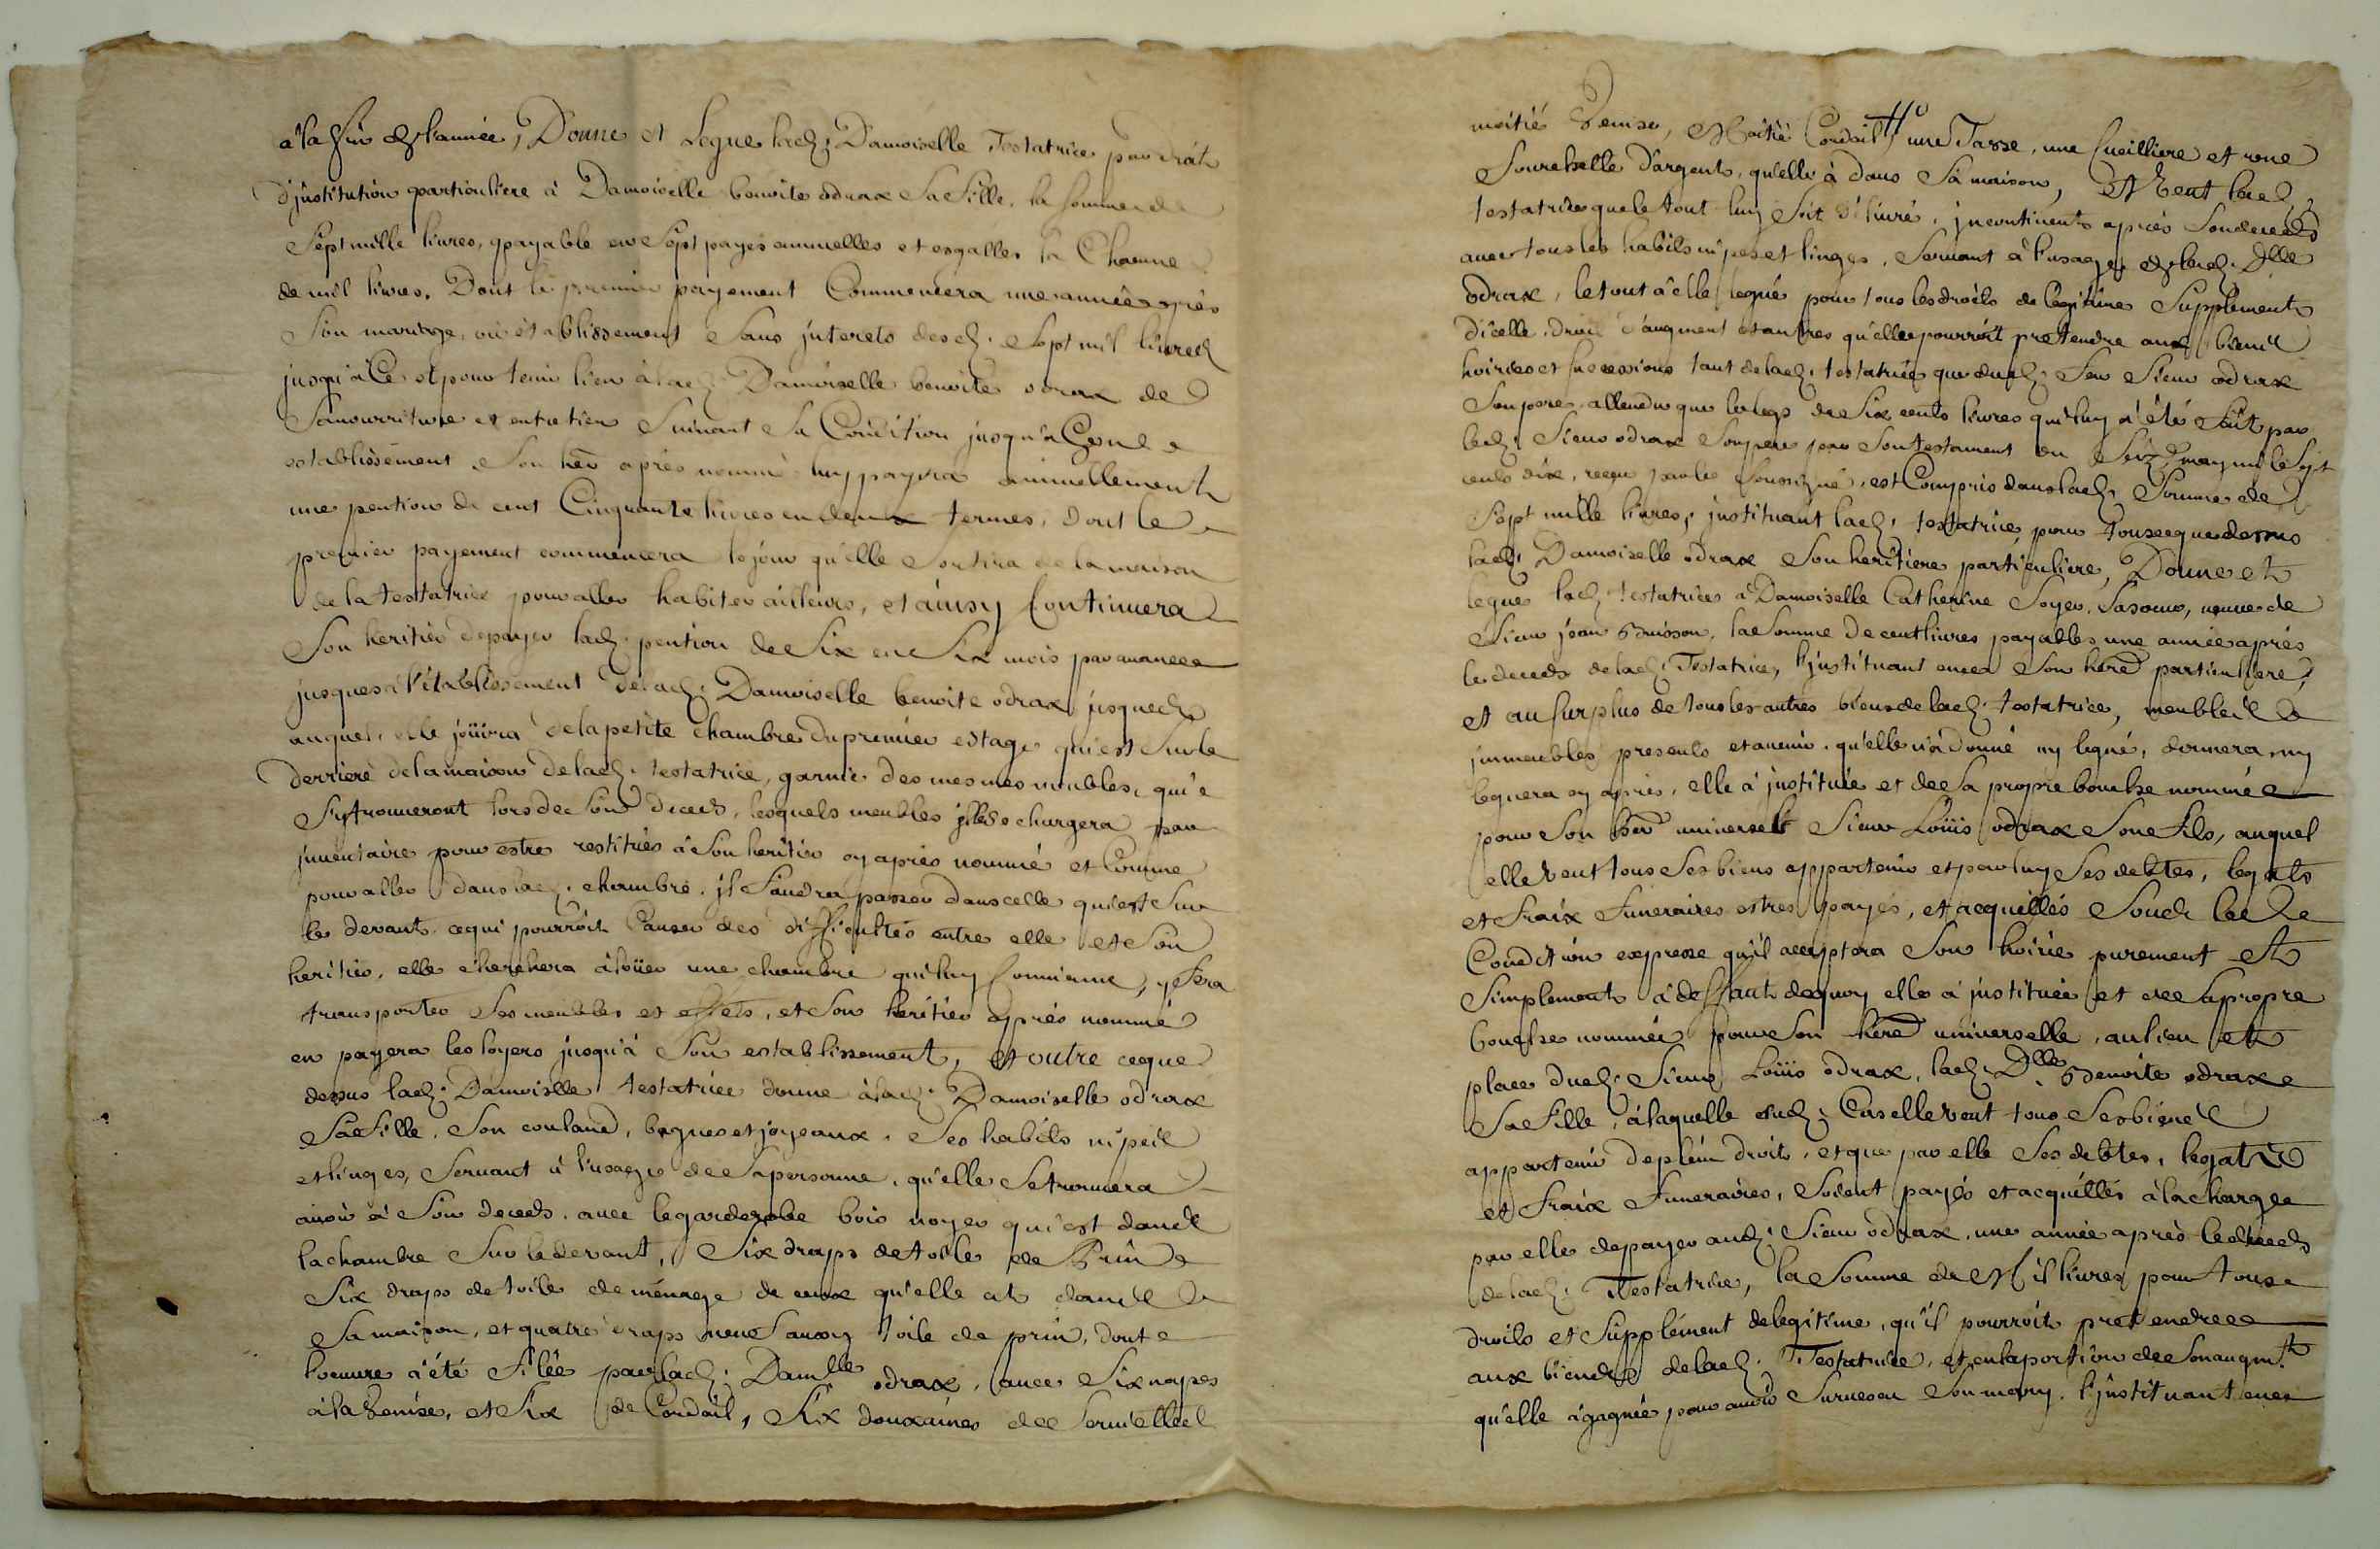 à la fin de l'année, Donne et Legue lad. Damoiselle Testatrice par droit
d'jnstitution particuliere à Damoiselle benoite odrax sa fille, la somme de
Sept mille livres, payable en Sept payes annuelles et esgalles la Chacune
de mil livres, Dont le premier payement Commencera une année après
Son mariage, ou établissement Sans jnterets desd. Sept mil livres
jusqu'à Ce et pour tenir lieu à lad. Damoiselle benoite odrax de
Sa nourriture et entretien Suivant Sa Condition jusqu'à Con
establissement Son her apres nommé luy payera annuellement
une pention de cent Cinquante livres en deux termes, dont le
premier payement commencera le jour qu'elle Sortira de la maison
de la testatrice pour aller habiter ailleurs, et ainsy Continuera
Son heritier de payer lad. pention de Six en Six mois par avance
jusques à l'établissement de lad. Damoiselle benoite odrax jusques
auquel, elle joüira de la petite chambre du premier estage qui est Sur le
derriere de la maison de lad. testatrice, garnie des mesmes meubles, qui
S'y trouveront lors de Son deceds, lesquels meubles Se chargera par
jnventaire pour estre restitués à Son heritier cy après nommé et Comme
pour aller dans lad. chambre, jl faudra passer dans celle qui est Sur
le devant, ce qui pourroit Causer des difficultés entre elle et Son
heritier, elle cherchera à loüer une chambre qui luy Convienne, y fera
transporter Ses meubles et effets, et Son heritier après nommé
en payera les loyers jusqu'à Son establissement, et outre ce que
dessus lad. Damoiselle testatrice donne à lad. Damoiselle odrax
Sa fille, Son couland, bagues et joyeaux, Ses habits nipes
et linges, Servant à l'usage de Sa personne, qu'elle Se trouvera
avoir à Son deceds, avec le garderobe bois noyer qui est dans
la chambre Sur le devant, Six draps de toile de Prin
Six draps de toile de ménage de ceux qu'elle at dans
Sa maison, et quatre draps neufs aussy toile de prin, dont
l'oeuvre a été filée par lad. Damlle odrax, avec Six napes
à la Venise, et Six de Cordail, Six douzaines de Serviettes
moitié Venise, Moitié Cordail, une Tasse, une Cueilliere et une
fourchette d'argent, qu'elle à dans Sa maison, et Veut lad.
testatrice que le tout luy Soit délivré, jncontinent après Son deceds
avec tous les habits nipes et linges, Servant à l'usage de lad. Dlle
odrax, le tout à elle legué pour tous les droits de légitime Supplement
d'icelle, droit d'augment et autres qu'elle pourroit pretendre aux biens
hoiries et successions tant de lad. testatrice que dud. feu Sieur odrax
Son pere, attendu que le legs de Six cents livres qui luy a été fait par
led. Sieur odrax Son pere par Son testament du Seize may mil Sept
cents dix, reçu par le Soussigné, est Compris dans lad. Somme de
Sept mille livres, jnstituant lad. testatrice, pour tout ce que dessus
lad. Damoiselle odrax Son heritiere particuliere, Donne et
legue lad. testatrice à Damoiselle Catherine Soyer, Sa soeur, veuve de
Sieur jean Buisson, la Somme de cent livres payables une année après
le deceds de lad. Testatrice, l'jnstituant en ce Son here particuliere,
et au Surplus de tous les autres biens de lad. testatrice, meubles
jmmeubles presents et avenir, qu'elle n'a donné ny legué, donnera ny
leguera cy après, elle à jnstitué et de Sa propre bouche nommé
pour Son her universel Sieur Loüis odrax Son fils, auquel
elle veut tous Ses biens appartenir et par luy Ses debtes, legats
et fraix funeraires estre payés, et acquittés Soub la
Condition expresse qu'il acceptera Son hoirie purement et
Simplement à deffaut de quoy elle à jnstituée et de Sa propre
bouche nommée pour Son here universelle, au lieu et
place dud. Sieur Loüis odrax, lad. Dlle Benoite odrax
Sa fille, à laquelle aud. Cas elle veut tous Ses biens
appartenir de plein droit, et que par elle Ses debtes, legats
et fraix funeraires, Soient payés et acquittés à la charge
par elle de payer aud. Sieur odrax, une année après le deceds
de lad. Testatrice, la Somme de Mil livres pour tous
droits et Supplément de legitime, qu'il pourroit pretendre
aux biens de lad. Testatrice, et en la portion de Son augmt
qu'elle à gagnée pour avoir Survescu Son mary, l'jnstituant en ce